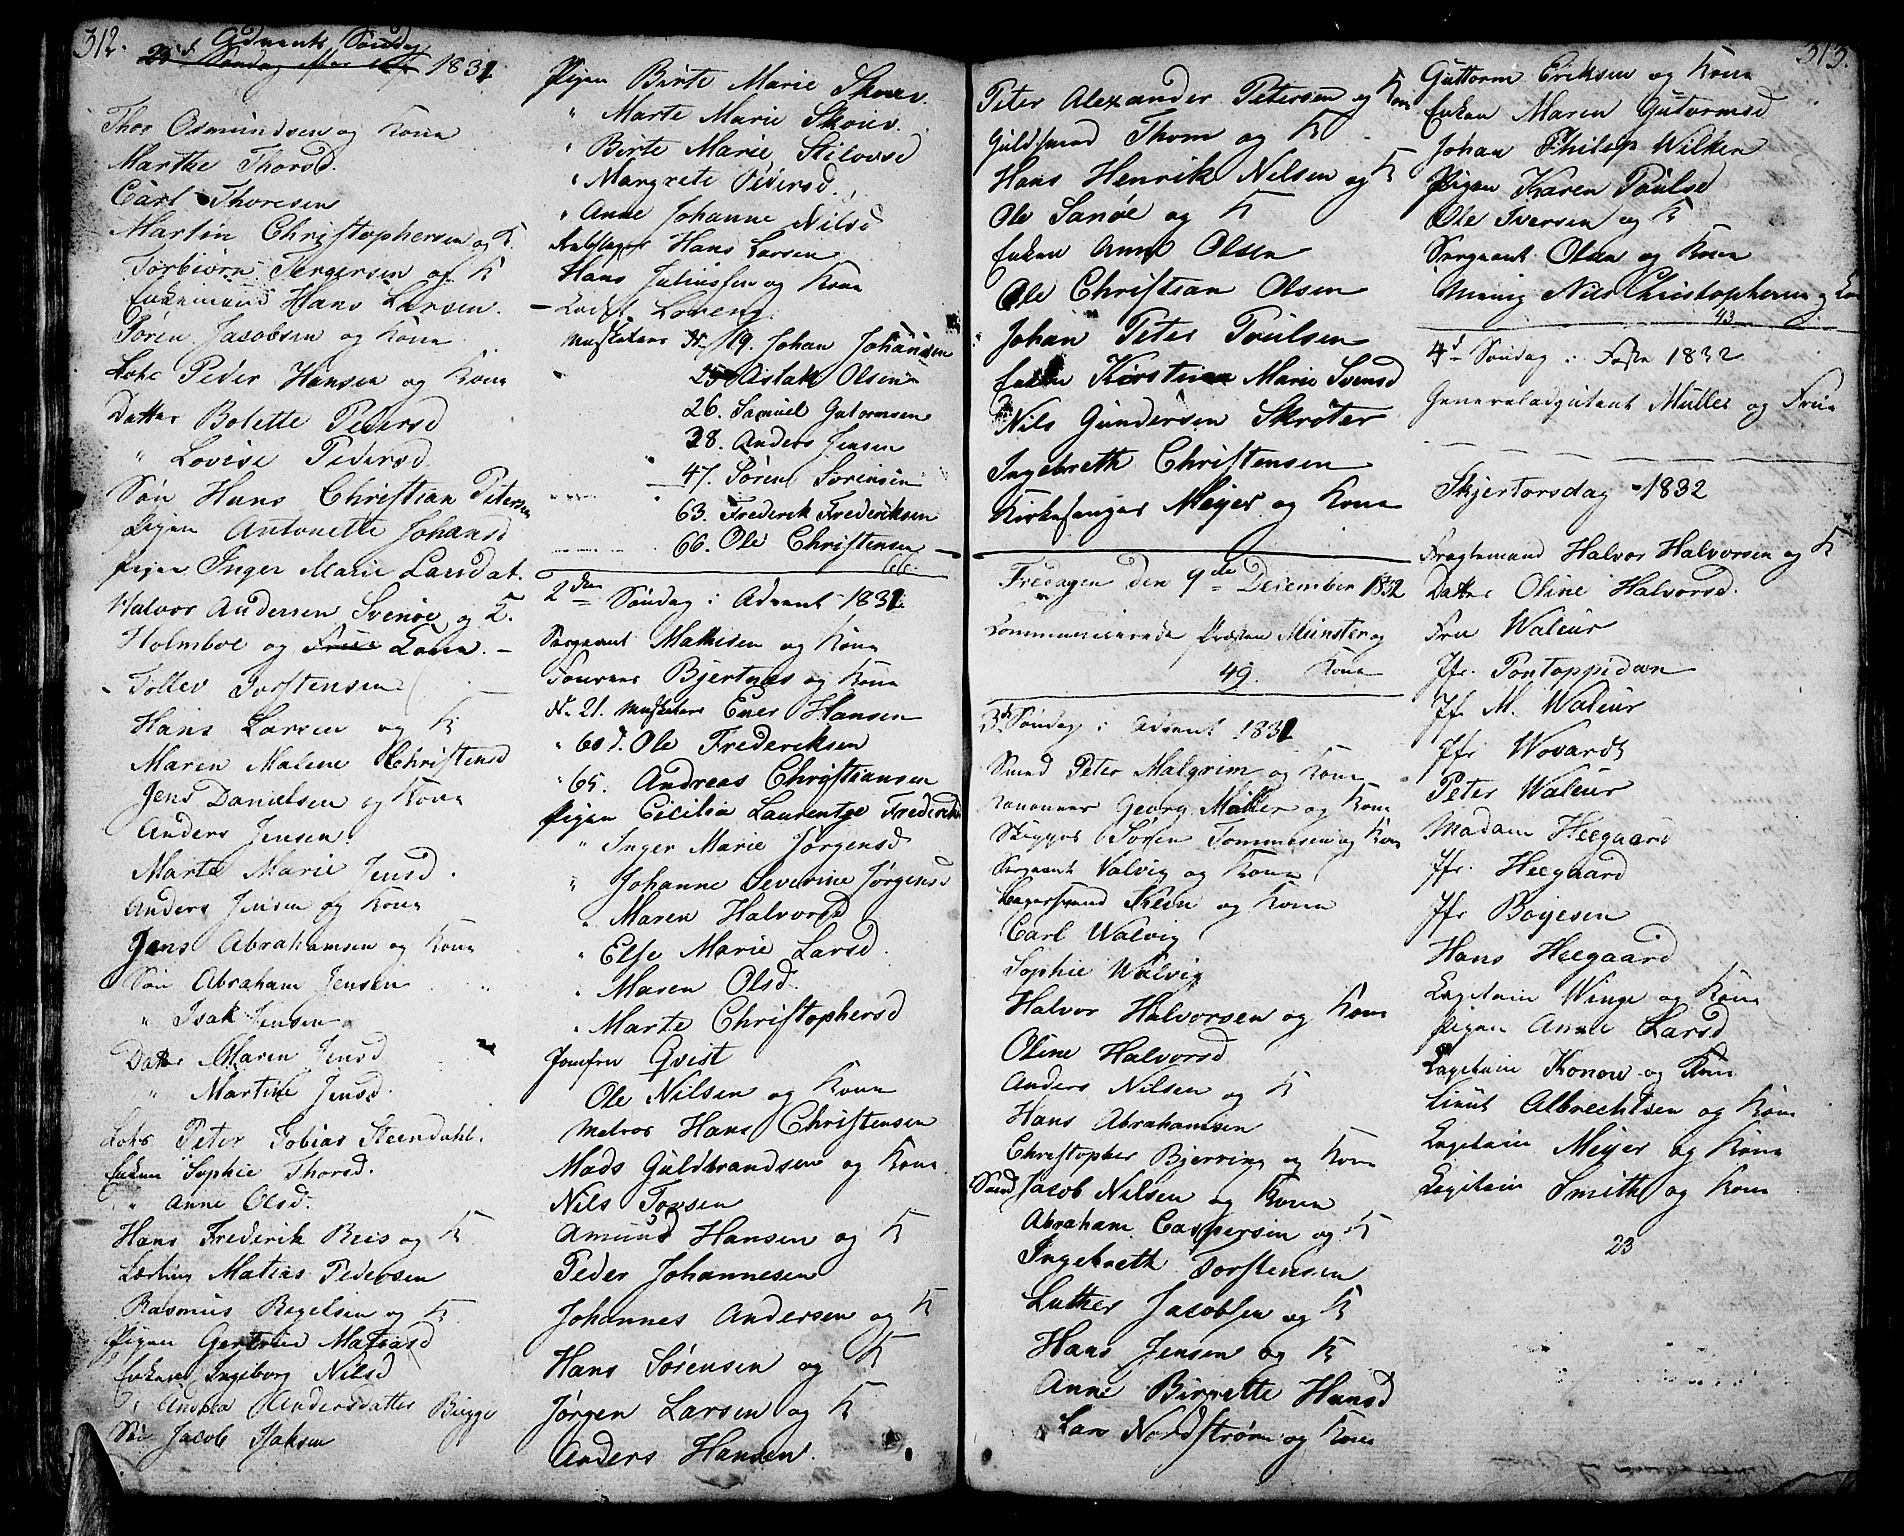 312.
Advents Søndag
20d Søndag efter 1831
Thor Osmundsen og Kone
Marthe Thorsd.
Carl Thoresen
Martin Christophersen og K.
Torbiørn Tergersen og K
Enkemand Hans Larsen.
Søren Jacobsen og Kone
Lods Peder Hansen og Kone
Datter Bolette Pedersd
" Lovise Pedersd.
Søn Hans Christian Petersen
Pigen Antonette Johansd
Pigen Inger Marie Larsdat.
Halvor Andersen Svenøe og K.
Holmboe og Frue Kone. —
Tollev Torstensen
Hans Larsen og K.
Maren Malene Christensd
Jens Danielsen og Kone
Anders Jensen.
Marte Marie Jensd.
Anders Jensen og Kone
Jens Abrahamsen og Kone
Søn Abraham Jensen
" Isak Jensen
Datter Maren Jensd
" Martine Jensd.
Lods Peter Tobias Steendahl.
Enken Sophie Thorsd.
" Anne Olsd.
Hans Frederik Beis og K
Lærling Matias Pedersen
Rasmus Bogelsen og K
Pigen Gertrud Matiasd
Enken Ingeborg Nilsd
" Andrea Andersdatter Bugge
Søn Jacob Isaksen
Pigen Birte Marie Skouv.
" Marte Marie Skouv.
" Birte Marie Stilovsd
" Margrete Pedersd.
" Anne Johanne Nilsd
Rebslager Hans Larsen
Hans Juliussen og Kone
— Kadet Lorentz.
Musketeer N. 19. Johan Johansen
25 Aslak Olsen
26. Samuel Gutormsen
38. Anders Jensen
47. Søren Sørensen
63. Frederik Frederiksen
66. Ole Christensen —
66.
2den Søndag i Advent 1831.
Sergeant Mathisen og Kone
Foureer Bjertnæs og Kone
N. 21. Musketeer Ener Hansen
" 60 d. Ole Frederiksen
" 65. Andreas Christiansen
Pigen Cicilia Laurentze Frederiksd
" Inger Marie Jørgensd
" Johanne Severine Jørgensd
" Maren Halvorsd
" Else Marie Larsd.
" Maren Olsd.
" Marte Christophersd
Jomfru Qvist
Ole Nilsen og Kone
Matros Hans Christensen
Mads Guldbrandsen og Kone
Nils Torsen
Amund Hansen og K
Peder Johannesen
Johannes Andersen og K
Hans Sørensen og K
Jørgen Larsen og K
Anders Hansen.
Peter Alexander Petersen og Kone
Guldsmed Thom og K
Hans Henrik Nilsen og K
Ole Sanøe og K
Enken Anne Olsen
Ole Christian Olsen
Johan Peter Poulsen
Enken Kirstine Marie Svensd
Nils Gundersen Skrøter
Ingebreth Christensen
Kirkesanger Meyer og Kone
Fredagen den 9de December 1832
Communicerede Præsten Münster og
49. Kone
3d Søndag i Advent 1831
Smed Peter Malgrim og Kone
Kanoneer Georg Møller og Kone
Skipper Søren Tommesen og Kone
Sergeant Valvig og Kone
Klein og Kone
Carl Walvig
Sophie Walvig
Halvor Halvorsen og Kone
Oline Halvorsd
Anders Nilsen og K
Hans Abrahamsen
Christopher Bjerring og Kone
Smed Jacob Nilsen og Kone
Abraham Caspersen og K
Ingebreth Torstensen
Luther Jacobsen og K
Hans Jensen og K
Anne Birgette Hansd
Lars Nordstrøm og Kone
313.
Guttorm Eriksen og Kone
Enken Maren Gutormsd
Johan Philip Wilken
Pigen Karen Poulsd
Ole Iversen og K
Sergeant Olsen og Kone
Menig Nils Christophersen og Kone
43
4d Søndag i Faste 1832
Generaladjutant Müller og Frue
Skjertorsdag 1832
Fragtemand Halvor Halvorsen og K
Datter Oline Halvorsd.
Fru Waleur
Jfr. Pontoppidan
Jfr M. Waleur
Jfr Wovardt
Peter Waleur
Madam Heegaard
Jfr. Heegaard
Jfr Boyesen
Hans Heegaard
Capitain Winge og Kone
Pigen Anne Larsd
Capitain Konow og Kone
Lieut Albrechtsen og Kone
Capitain Meyer og Kone
Capitain Smith og Kone
23